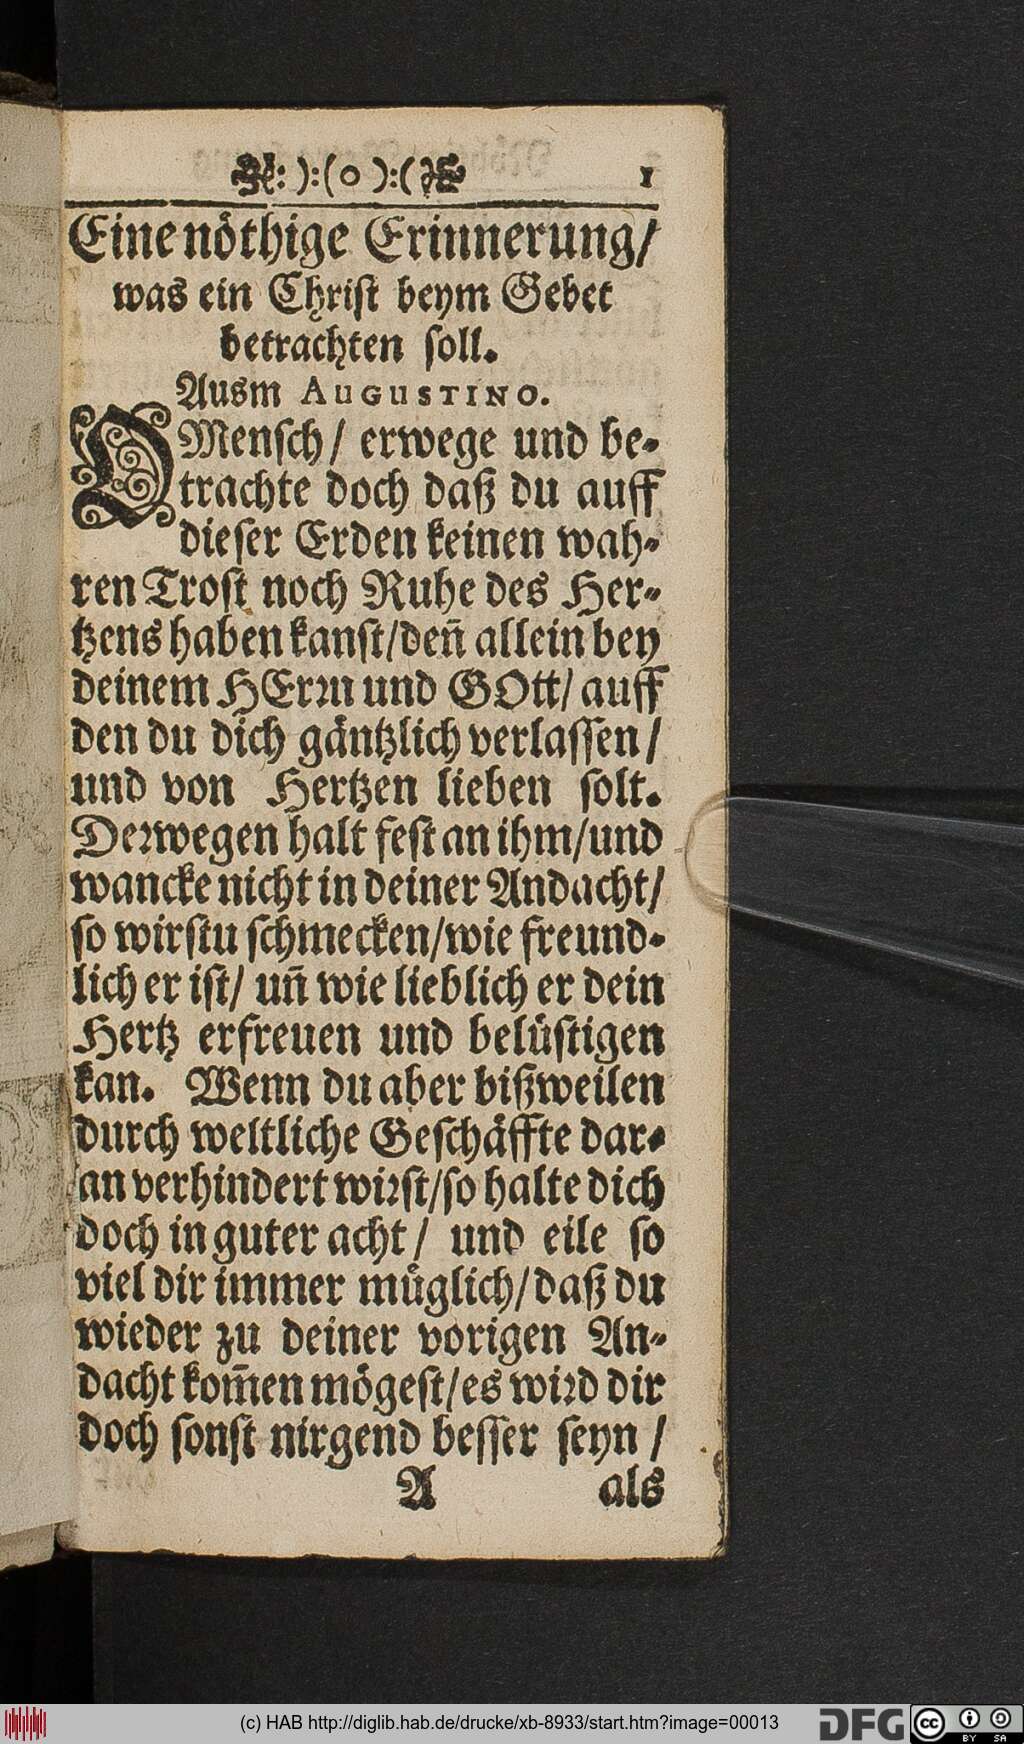 :):(o):(
1
Eine nöthige Erinnerung/
was ein Christ beym Gebet
betrachten soll.
Ausm AUGUSTINO.
O Mensch/ erwege und be-
trachte doch daß du auff
dieser Erden keinen wah-
ren Trost noch Ruhe des Her-
tzens haben kanst/deñ allein bey
deinem HErrn und GOtt/ auff
den du dich gäntzlich verlassen/
und von Hertzen lieben solt.
Derwegen halt fest an ihm/und
wancke nicht in deiner Andacht/
so wirstu schmecken/wie freund-
lich er ist/ uñ wie lieblich er dein
Hertz erfreuen und belüstigen
kan. Wenn du aber bißweilen
durch weltliche Geschäffte dar-
an verhindert wirst/so halte dich
doch in guter acht/ und eile so
viel dir immer müglich/daß du
wieder zu deiner vorigen An-
dacht kom̃en mögest/es wird dir
doch sonst nirgend besser seyn /
A als
(c) HAB http://diglib.hab.de/drucke/xb-8933/start.htm?image=00013
DFG
cc BY SA